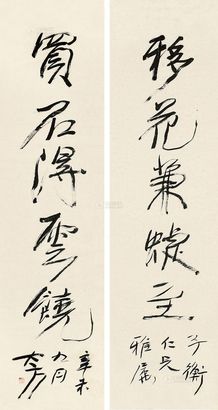 移花兼蝶至
子衡
仁兄
雅属
買石得雲饒
辛未
九月
大千